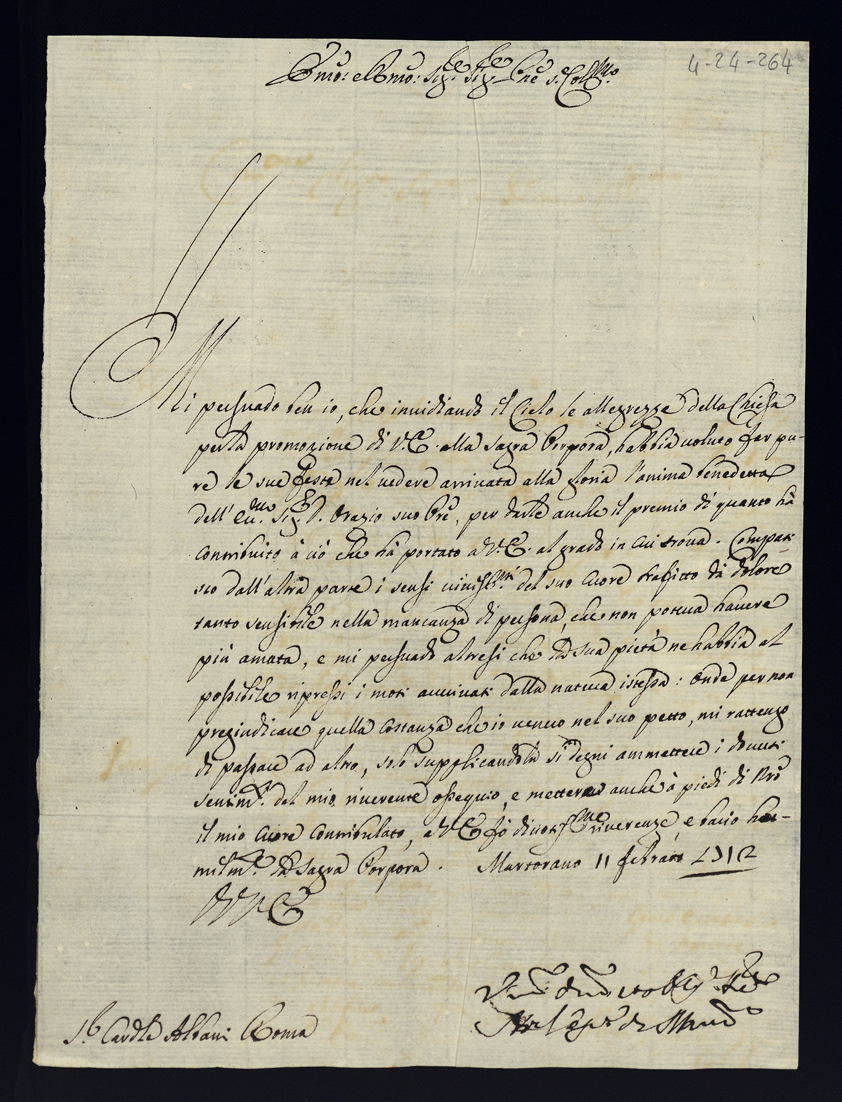 4-24-264
Emo: e Rmo: Sig.re Sig.re Pne Col.mo
Mi persuado ben io, che invidiando il Cielo le allegrezze della Chiesa
per la promozione di V.E. alla sagra Porpora, habbia voluto far pu-
re le sue feste nel vedere arrivata alla gloria l'anima benedetta
dell' Sig.r D. Orazio suo Pre, per darle anche il premio di quanto hà
contribuito à ciò che hà portato a V.E. al grado in cui trova. Compati-
sco dall'altra parte i sensi del suo cuore trafitto da dolore
tanto sensibile nella mancanza di persona, che non poteva havere
più amata, e mi persuado altresi che la sua pietà ne habbia al
possibile ripressi i moti avvivati dalla natura istessa: Onde per non
pregiudicare quella costanza che io venero nel suo petto, mi rattengo
di passare ad altro, solo supplicandola si degni ammettere i divoti
sentim.ti del mio riverente ossequio, e mettere anche à piedi di Nro
il mio cuore contribulato, a V.E. fò riverenze e bacio hu-
milm.te la sagra Porpora. Martorano 11 febraro 1712
D V. E.
S.r Card.le Albani Roma